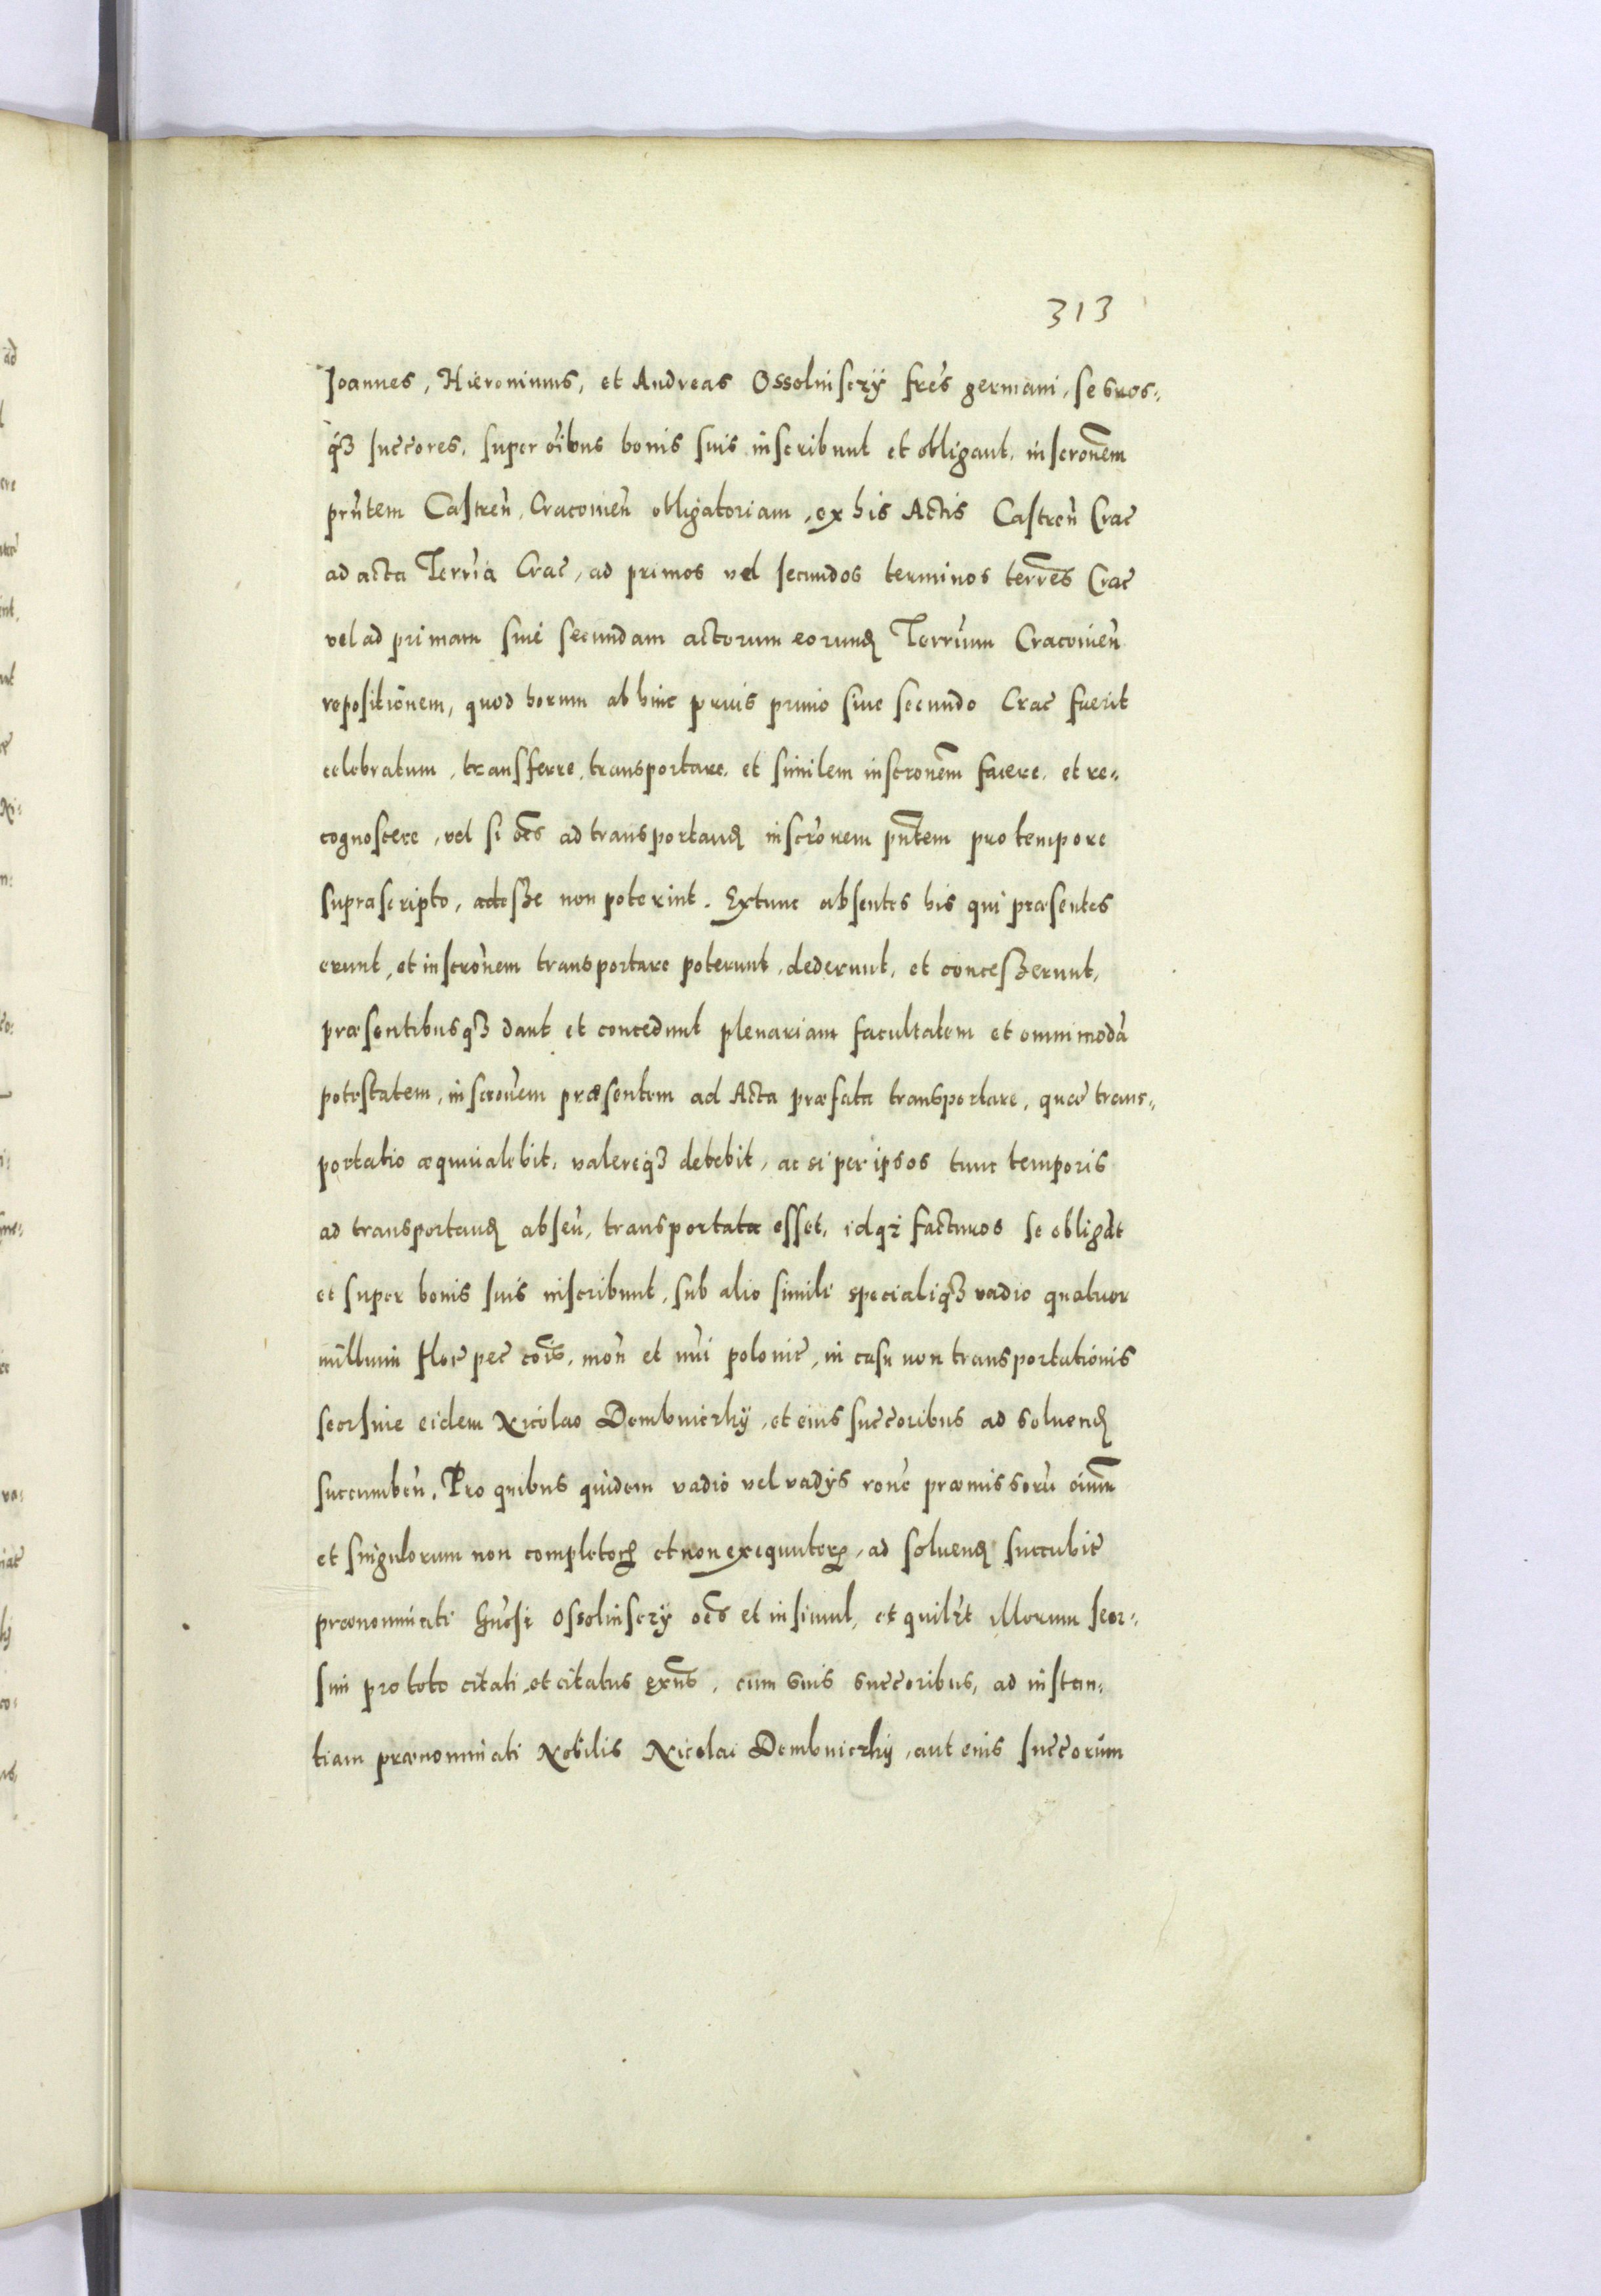 313
Joannes, Hieronimus, et Andreas Ossolinsczÿ frēs germani, se suos-
q́ȝ succ̄ores, super oībus bonis suis inscribunt et obligant, inscrōnem
prn̄tem Castreñ, Cracovieñ obligatoriam, ex his Actis Castreñ Crac̄
ad acta Terrīa Crac̄, ad primos vel secundos terminos terrēs Crac̄
vel ad primam sive secundam actorum eorund̨ Terrīum Cracovieñ
repositionem, quod horum ab hinc prius primo sive secundo Crac̄ fuerit
celebratum, transferre, transportare, et similem inscrōnem facere, et re-
cognoscere, vel si oēs ad transportand̨ inscrōnem pn̄tem pro tempore
suprascripto, adesse non poterint. Extunc absentes his qui præsentes
erunt, et inscrōnem transportare poterunt, dederunt, et concesserunt,
præsentibusqȝ dant et concedunt plenariam facultatem et omnimodā
potestatem, inscrōnem præsentem ad Acta præfata transportare, quæ trans-
portatio æquivalebit, valereqȝ debebit, ac si per ipsos tunc temporis
ad transportand̨ abseñ, transportata esset, idq́ȝ facturos se obligāt
et super bonis suis inscribunt, sub alio simili specialiqȝ vadio quatuor
millium flor̄ pec̄ cōis, moñ et nūi polonic̄, in casu non transportationis
seorsive eidem Nicolao Dembniczkÿ, et eius succ̄oribus ad soluend̨
succumbeñ. Pro quibus quidem vadio vel vadÿs rōne præmissorū oīum
et singulorum non completorꝝ et non exequutorꝝ, ad soluend̨ succubit̄
prænominati Gn̄osi Ossolinsczÿ oēs et insimul, et quilꝫt illorum seor-
sim pro toto citati, et citatus exn̄s, cum suis succ̄oribus, ad instan-
tiam prænominati Nobilis Nicolai Dembniczkÿ, aut eius succ̄orum